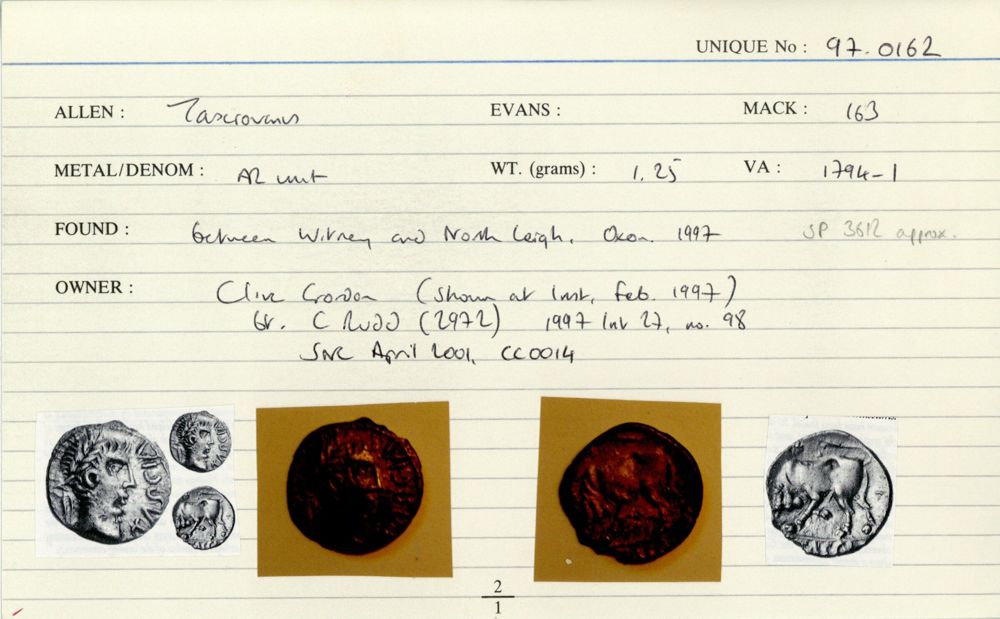 UNIQUE No : 97.0162
ALLEN : Tasciovanus EVANS : MACK : 163
METAL/DENOM : AR unit WT. (grams) : 1.25 VA : 1794-1
FOUND : between Witney and North Leigh, Oxon. 1997 SP 3612 approx.
OWNER : Clive (shown at Inst, Feb. 1997)
C Rudd (2972) 1997 list 27, no. 98
SNC April 2001, CC0014
2
1